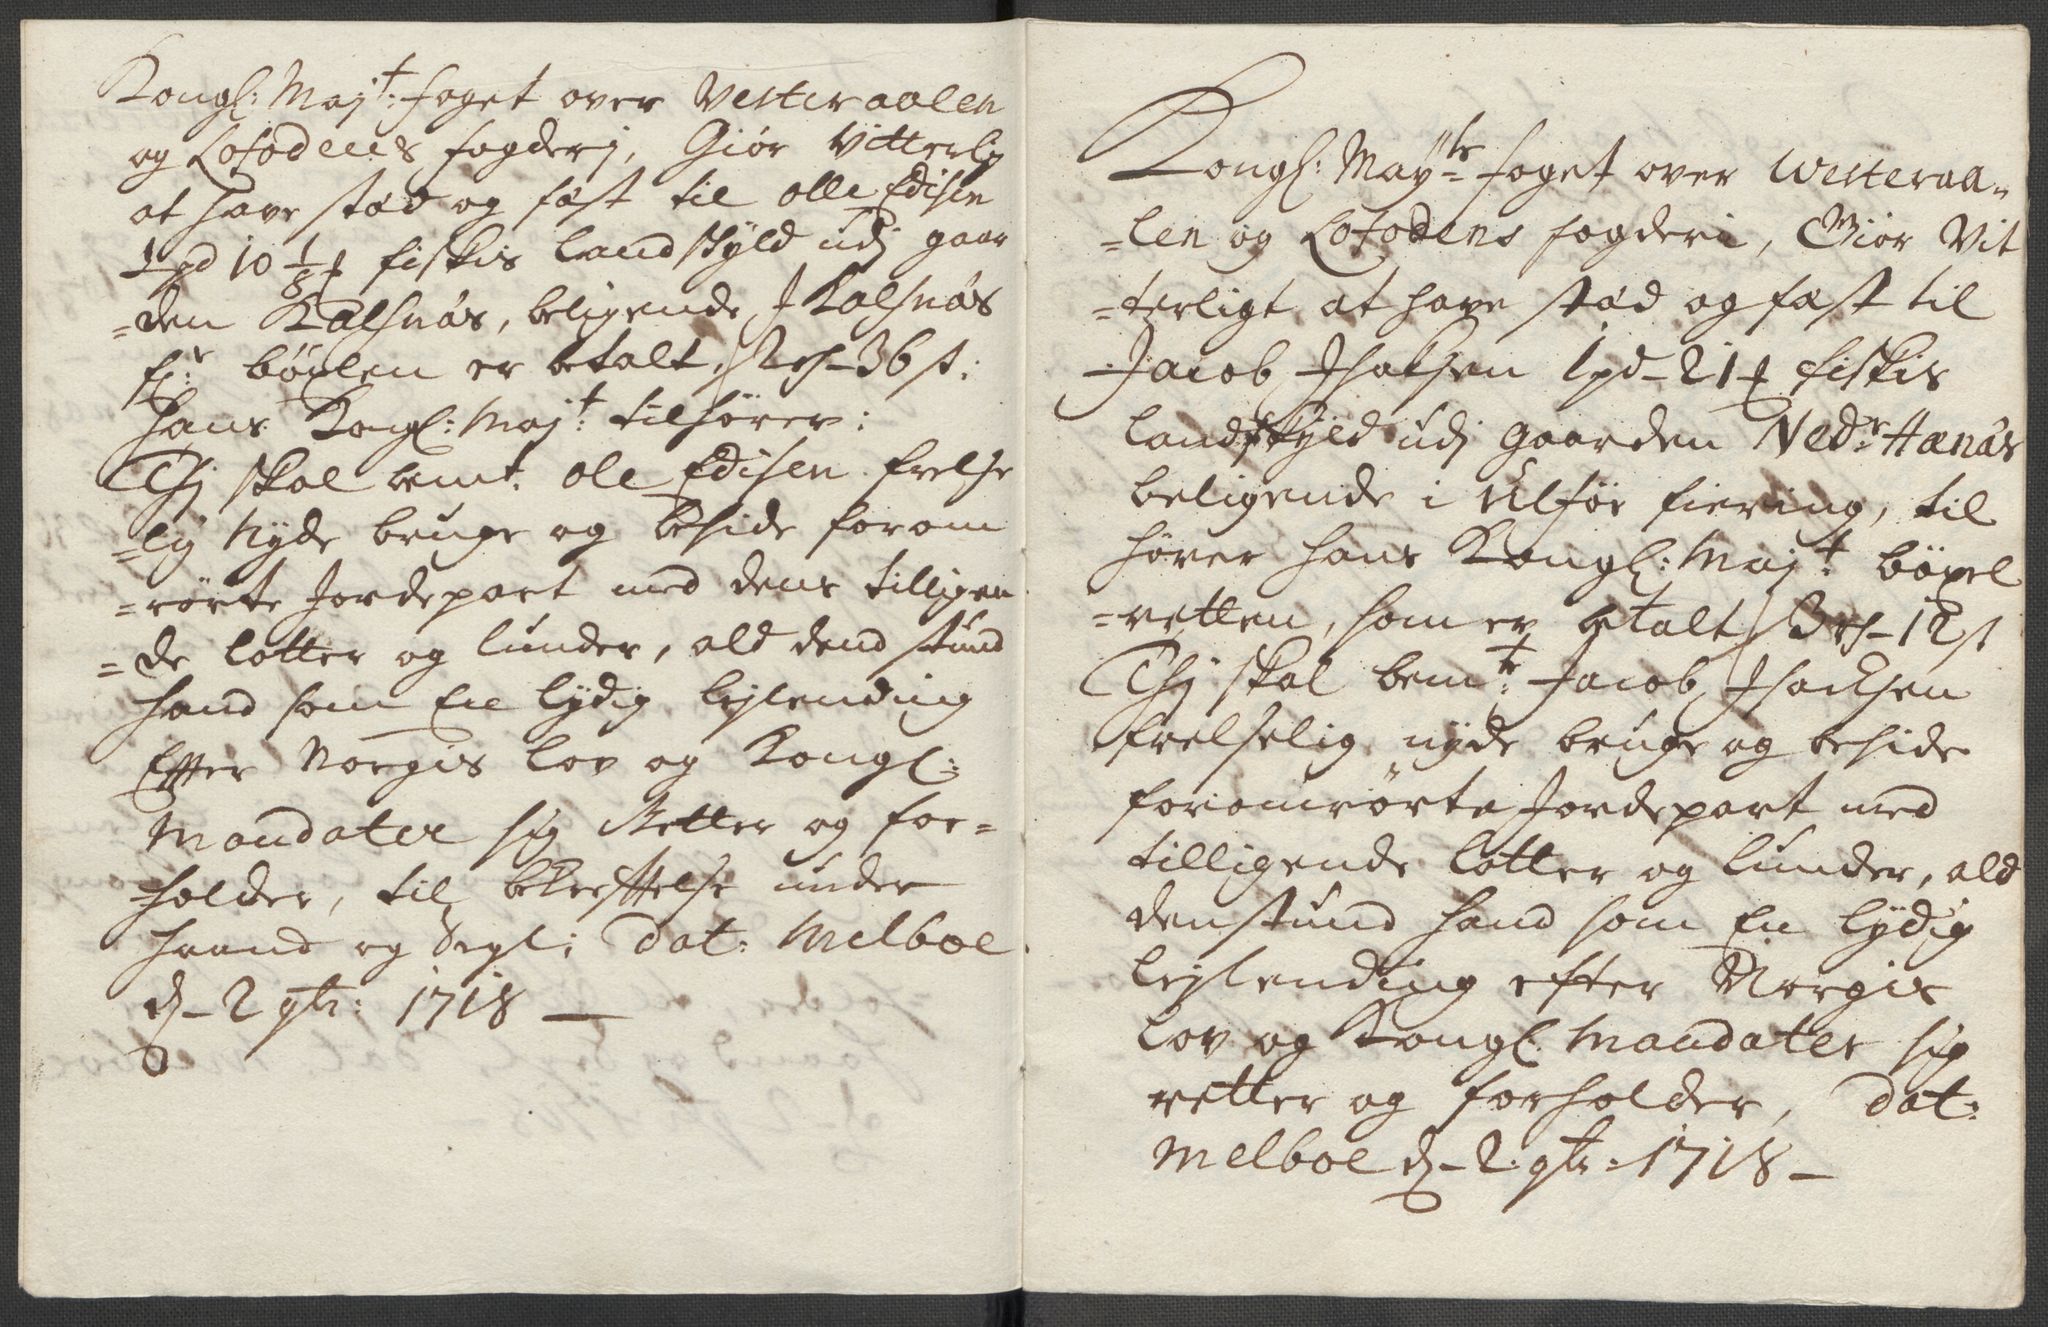 Kongl: Maj:t foget over Vesteraalen
og Lofodens fogderj, Giör Vitterlig
at have stæd og fæst til olle Edisen
1 pd 10 1/8 ƒ fiskis landskyld udj gaar
=den Kalsnæs, beligende J Kalsnæs
f:r böxlen er betalt, 2 rh - 36 s:
hans Kongl: Maj:t tilhörer:
Thj skal bemt: ole Edisen frelse
=lig Nyde bruge og beside forom
=rörte Jordepart med dens tilligen
=de lotter og lunder, ald dend stund
hand som En lydig lejlending
Efter Norgis lov og Kongl:
Mandater sig Retter og for=
holder, til bekreftelse under
haand og Segl; Dat: Melboe
d - 2 9br: 1718 —
Kongl: May:ts foget over Westeraa=
=len og Lofodens fogderi, Giör Vit
=terligt at have stæd og fæst til
Jacob Jsachsen 1 pd - 21 ƒ fiskis
landskyld udj gaarden Ned:r Hanæs
beligende i Ulför fiering, til
hörer hans Kongl: Maj:t böxel
=retten, som er betalt 3 rh - 12 s
Thj skal bem:te Jacob Jsachsen
frelselig nyde bruge og beside
foromrörte Jordepart med
tilligende lotter og lunder, ald
denstund hand som En lydig
lejlending efter Norgis
lov og Kongl: Mandater sig
retter og forholder, Dat:
Melboe d - 2. 9br: 1718 —